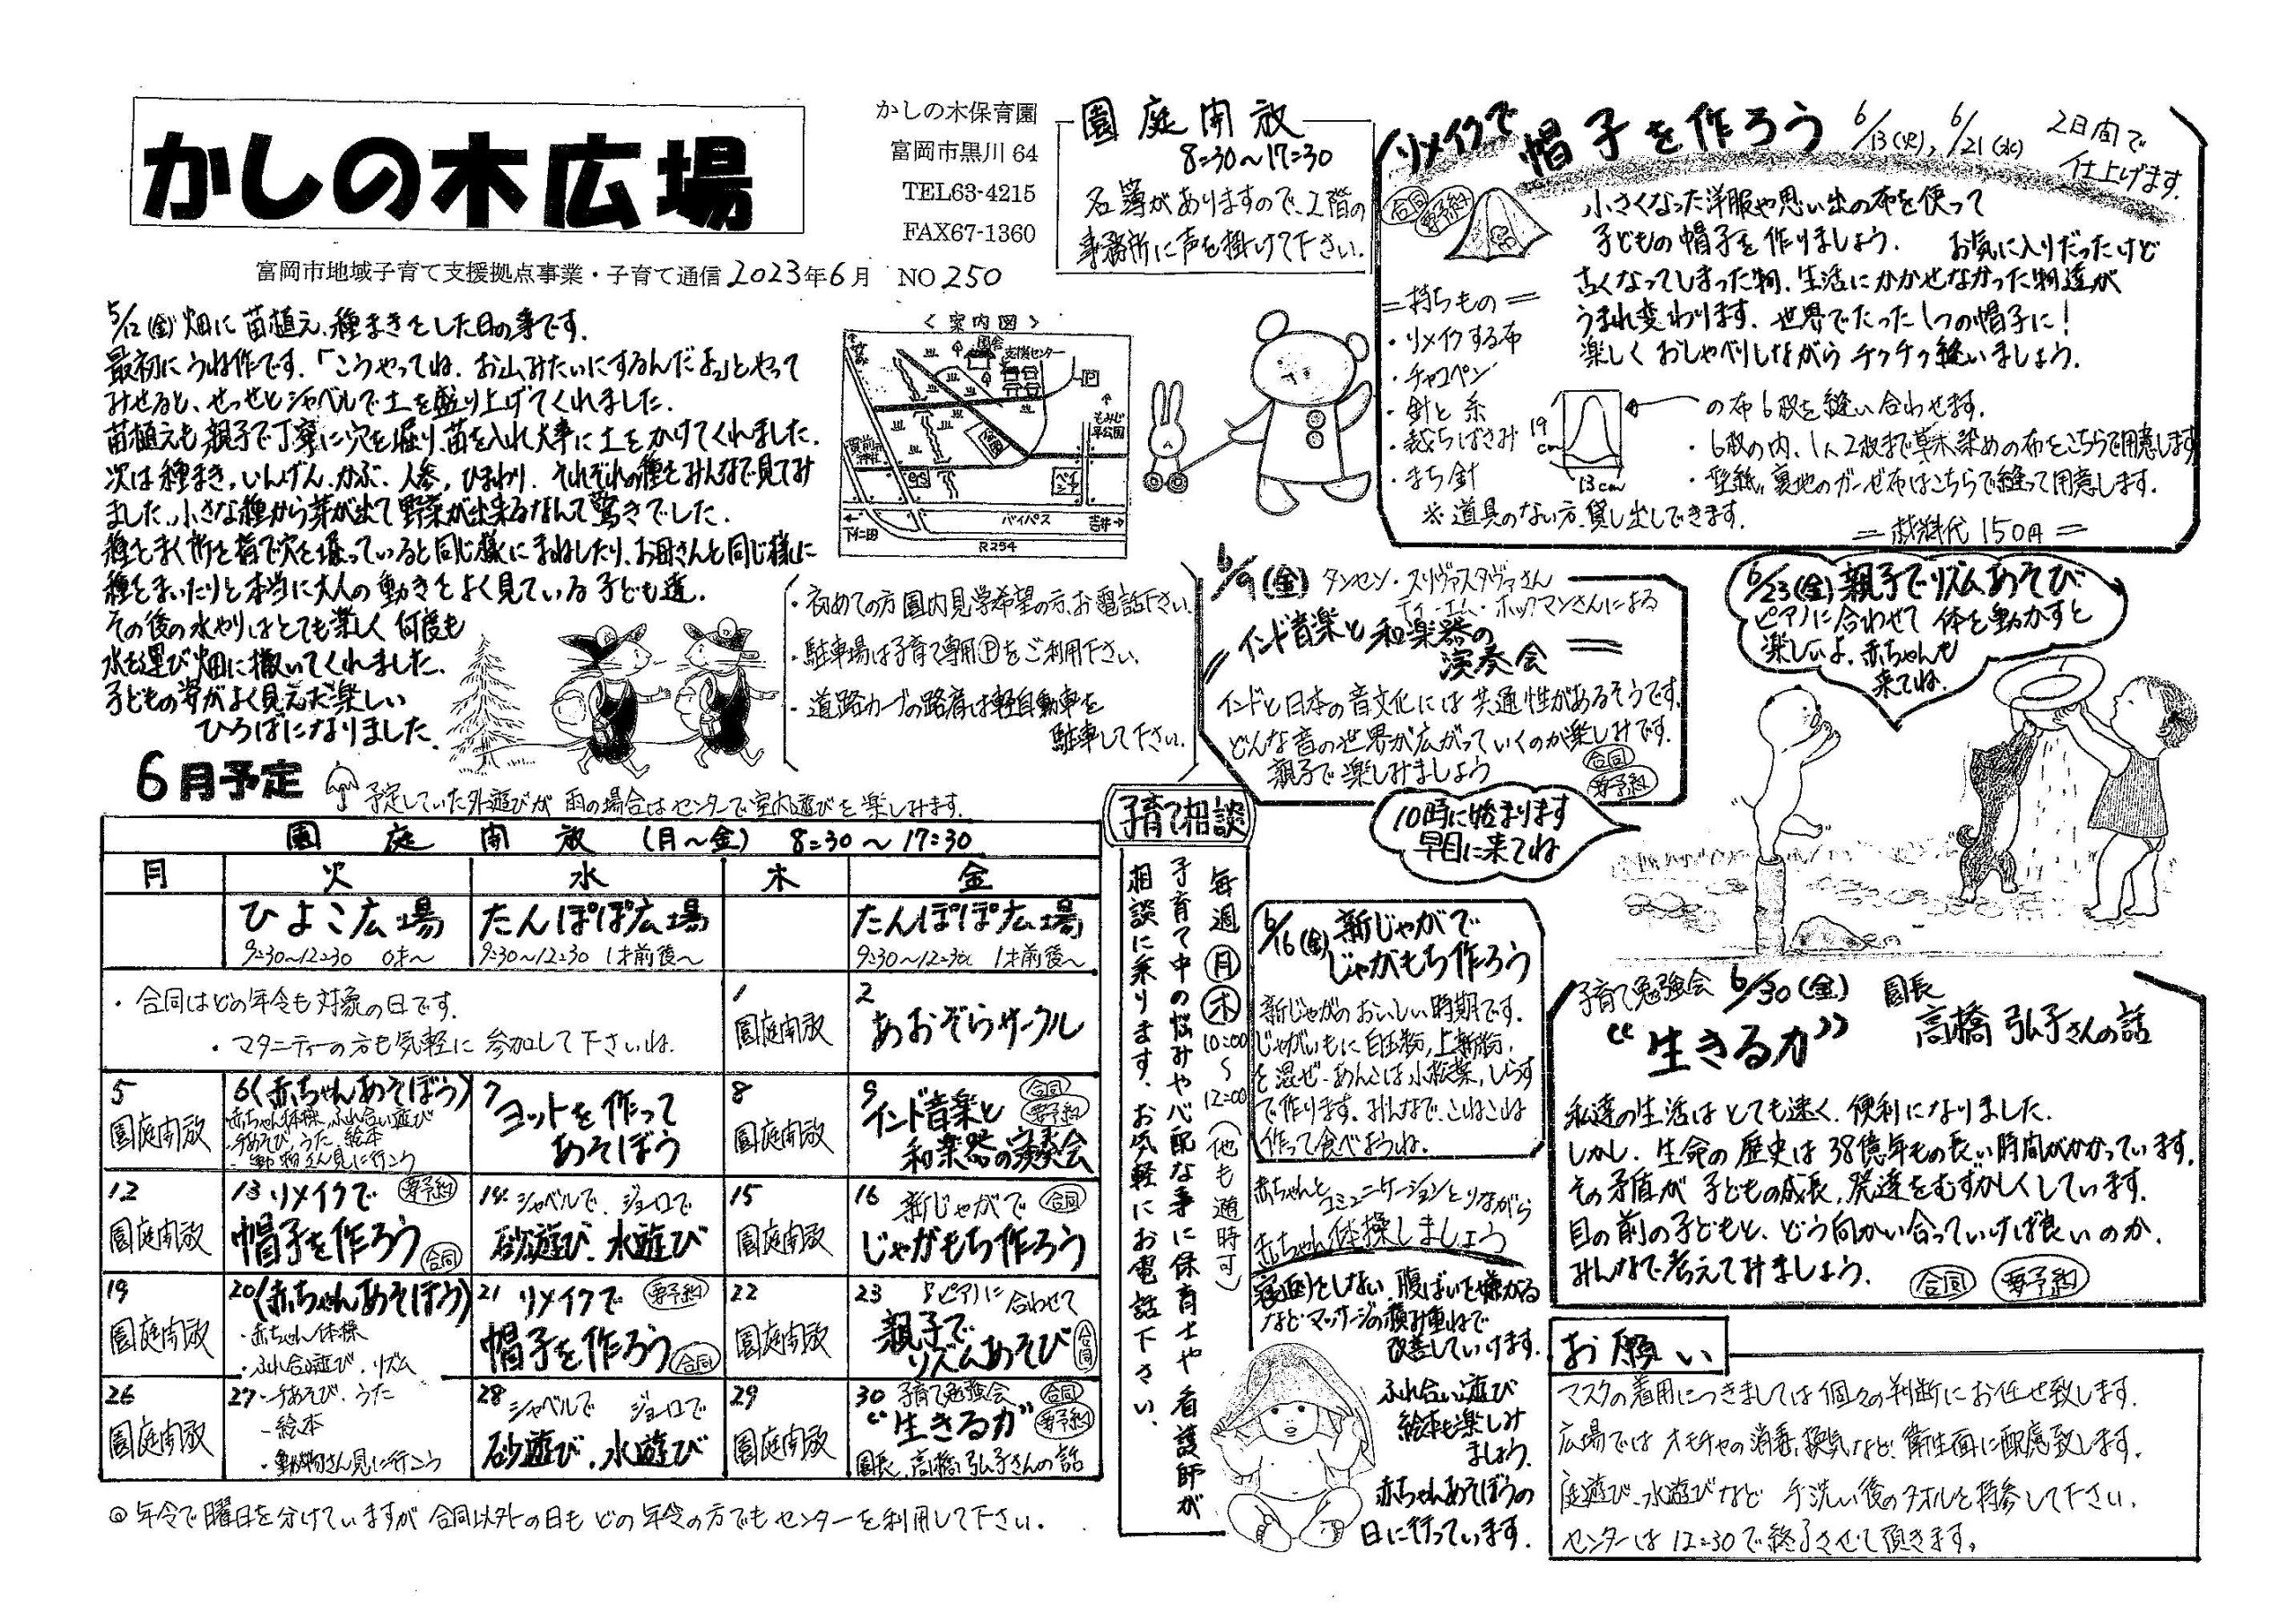 かしの木広場
かしの木保育園
富岡市黒川 64
TEL63-4215
FAX67-1360
富岡市地域子育て支援拠点事業・子育て通信 2023年6月 NO 250
園庭開放
8:30～17:30
名簿がありますので、2階の
事務所に声を掛けて下さい。
5/12(金) 畑に苗植え、種まきをした日の事です。
最初にうね作です。「こうやってね、お山みたいにするんだよ」とやって
みせると、せっせとシャベルで土を盛り上げてくれました。
苗植えも親子で丁寧に穴を掘り、苗を入れ大事に土をかけてくれました。
次は種まき、いんげん、かぶ、人参、ひまわり、それぞれの種をみんなで見てみ
ました。小さな種から芽が出て野菜が出来るなんて驚きでした。
種をまく所を指で穴を掘っていると同じ様にまねしたり、お母さんと同じ様に
種をまいたりと本当に大人の動きをよく見ている子ども達。
その後の水やりはとても楽しく何度も
水を運び畑に撒いてくれました。
子どもの姿がよく見えた楽しい
ひろばになりました。
〈案内図〉
支援センター
P
もみじ平公園
バイパス
吉井→
下仁田
R254
・初めての方園内見学希望の方、お電話下さい。
・駐車場は子育て専用Ⓟをご利用下さい。
・道路カーブの路肩は軽自動車を
駐車して下さい。
リメイクで帽子を作ろう 6/13(火)、6/21(水) 2日間で
仕上げます。
合同 要予約
小さくなった洋服や思い出の布を使って
子どもの帽子を作りましょう。 お気に入りだったけど
古くなってしまった物、生活にかかせなかった物達が
うまれ変わります。世界でたった1つの帽子に！
楽しくおしゃべりしながらチクチク縫いましょう。
=持ちもの=
・リメイクする布
・チャコペン
・針と糸
・裁ちばさみ
・まち針
※道具のない方、貸し出しできます。
19cm
13cm
の布6枚を縫い合わせます。
・6枚の内、1人2枚まで草木染めの布をこちらで用意します
・型紙、裏地のガーゼ布はこちらで縫って用意します。
=材料代 150円=
6/9(金) タンセン・スリヴァスタヴァさん
ティ・エム・ホッフマンさんによる
インド音楽と和楽器の
演奏会
インドと日本の音文化には共通性があるそうです。
どんな音の世界が広がっていくのか楽しみです。
親子で楽しみましょう
合同
要予約
10時に始まります
早目に来てね
6/23(金) 親子でリズムあそび
ピアノに合わせて体を動かすと
楽しいよ。赤ちゃんも
来てね。
6月予定
予定していた外遊びが雨の場合はセンターで室内遊びを楽しみます。
園庭開放 (月～金) 8:30～17:30
月 火 水 木 金
ひよこ広場 9:30～12:30 0才～
たんぽぽ広場 9:30～12:30 1才前後～
たんぽぽ広場 9:30～12:30 1才前後～
・合同はどの年令も対象の日です。
・マタニティーの方も気軽に参加して下さいね。
1 園庭開放
2 あおぞらサークル
5 園庭開放
6 (赤ちゃんあそぼう)
・赤ちゃん体操、ふれ合い遊び
・手あそび、うた、絵本
・動物さん見に行こう
7 ヨットを作って
あそぼう
8 園庭開放
9 インド音楽と
和楽器の演奏会 合同 要予約
12 園庭開放
13 リメイクで
帽子を作ろう 要予約 合同
14 シャベルで、ジョーロで
砂遊び、水遊び
15 園庭開放
16 新じゃがで
じゃがもち作ろう 合同
19 園庭開放
20 (赤ちゃんあそぼう)
・赤ちゃん体操
・ふれ合い遊び、リズム
21 リメイクで
帽子を作ろう 要予約 合同
22 園庭開放
23 ピアノに合わせて
親子で
リズムあそび 合同
26 園庭開放
27 ・手あそび、うた
・絵本
・動物さん見に行こう
28 シャベルで ジョーロで
砂遊び、水遊び
29 園庭開放
30 子育て勉強会 合同 要予約
"生きる力"
園長、高橋弘子さんの話
◎年令で曜日を分けていますが合同以外の日もどの年令の方でもセンターを利用して下さい。
子育て相談
毎週 月 木 10:00～12:00 (他も随時可)
子育て中の悩みや心配な事に保育士や看護師が
相談に乗ります。お気軽にお電話下さい。
6/16(金) 新じゃがで
じゃがもち作ろう
新じゃがのおいしい時期です。
じゃがいもに白玉粉、上新粉、
を混ぜ、あんこは小松菜、しらす
で作ります。みんなで、こねこね
作って食べようね。
赤ちゃんとコミュニケーションとりながら
赤ちゃん体操しましょう
寝返りをしない、腹ばいを嫌がる
などマッサージの積み重ねで
改善していけます。
ふれ合い遊び
絵本も楽しみ
ましょう。
赤ちゃんあそぼうの
日に行っています。
子育て勉強会 6/30(金) 園長
"生きる力" 高橋弘子さんの話
私達の生活はとても速く、便利になりました。
しかし、生命の歴史は38億年もの長い時間がかかっています。
その矛盾が子どもの成長、発達をむずかしくしています。
目の前の子どもと、どう向かい合っていけば良いのか、
みんなで考えてみましょう。 合同 要予約
お願い
マスクの着用につきましては個々の判断にお任せ致します。
広場ではオモチャの消毒、換気など、衛生面に配慮致します。
庭遊び、水遊びなど 手洗い後のタオルを持参して下さい。
センターは12:30で終了させて頂きます。